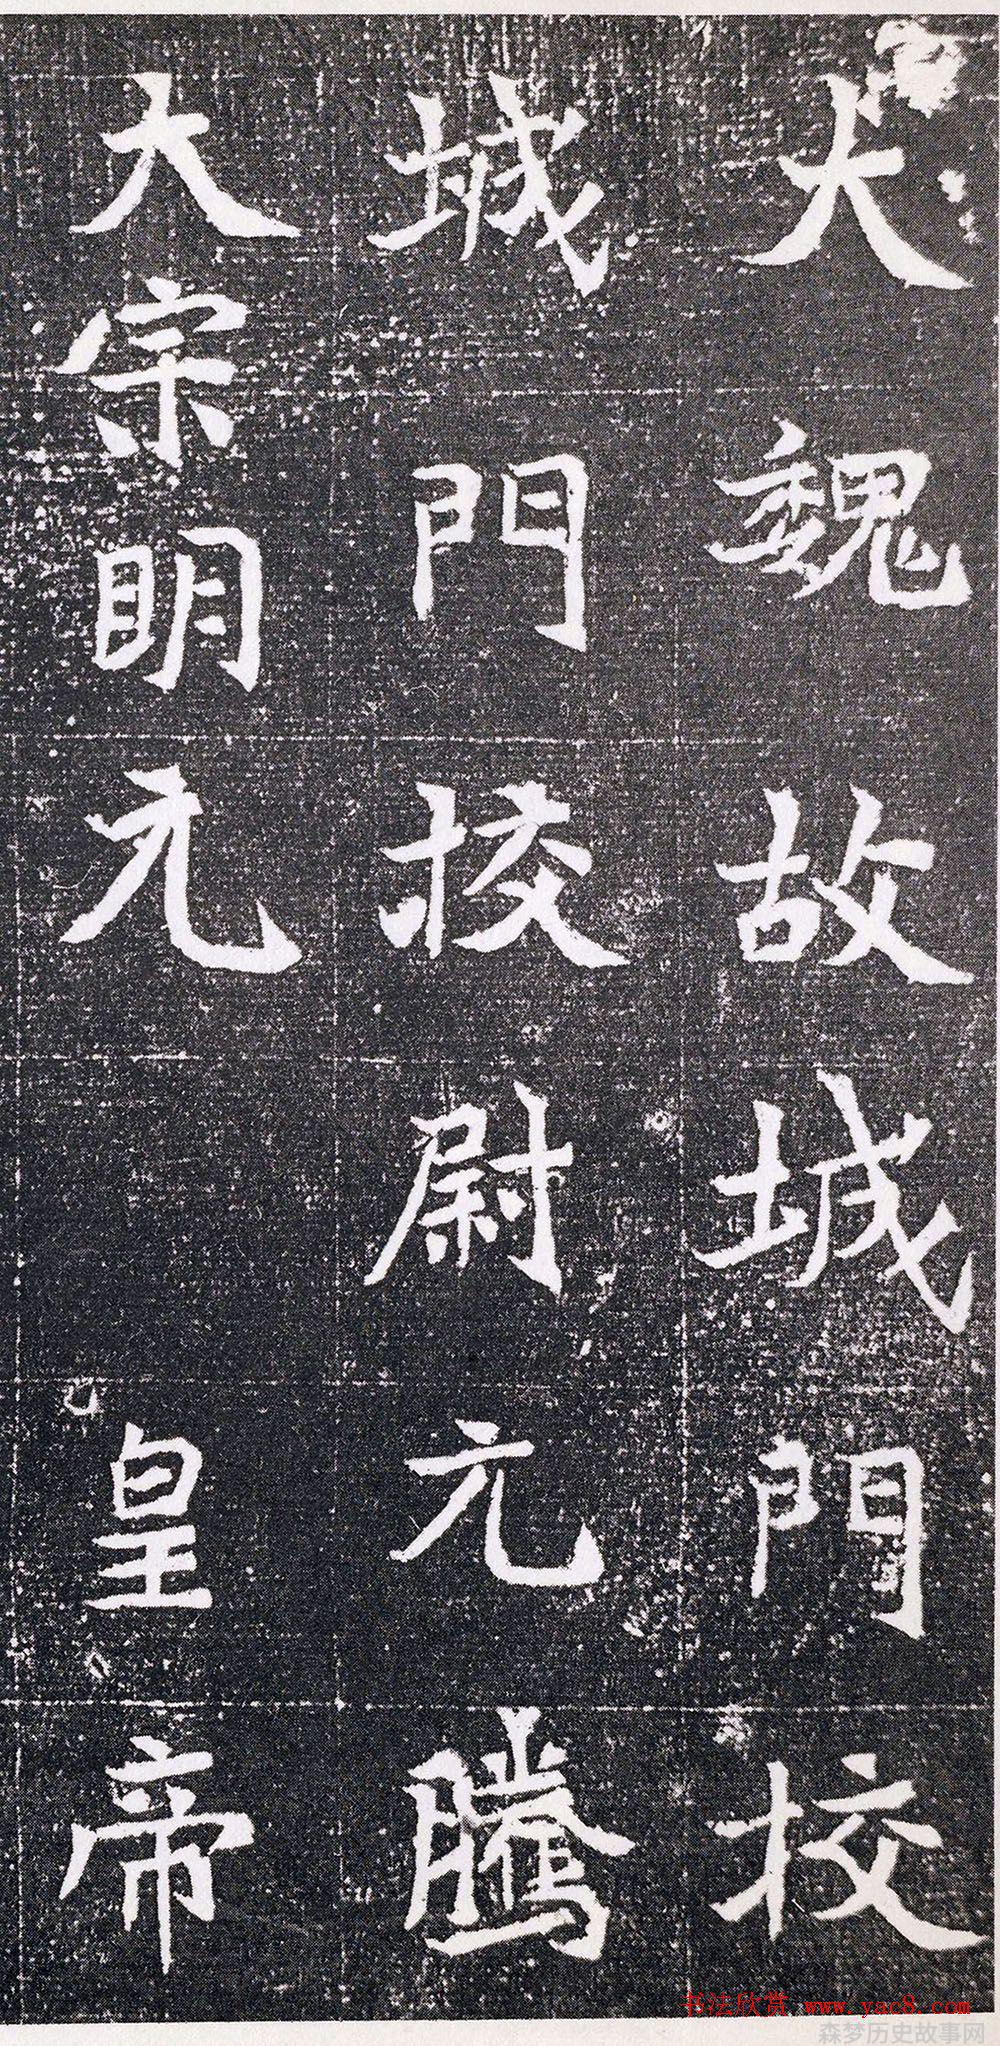 大魏故城門校
城門校尉元騰
大宗明元皇帝
书法欣赏 www.yac8.com
森梦历史故事网